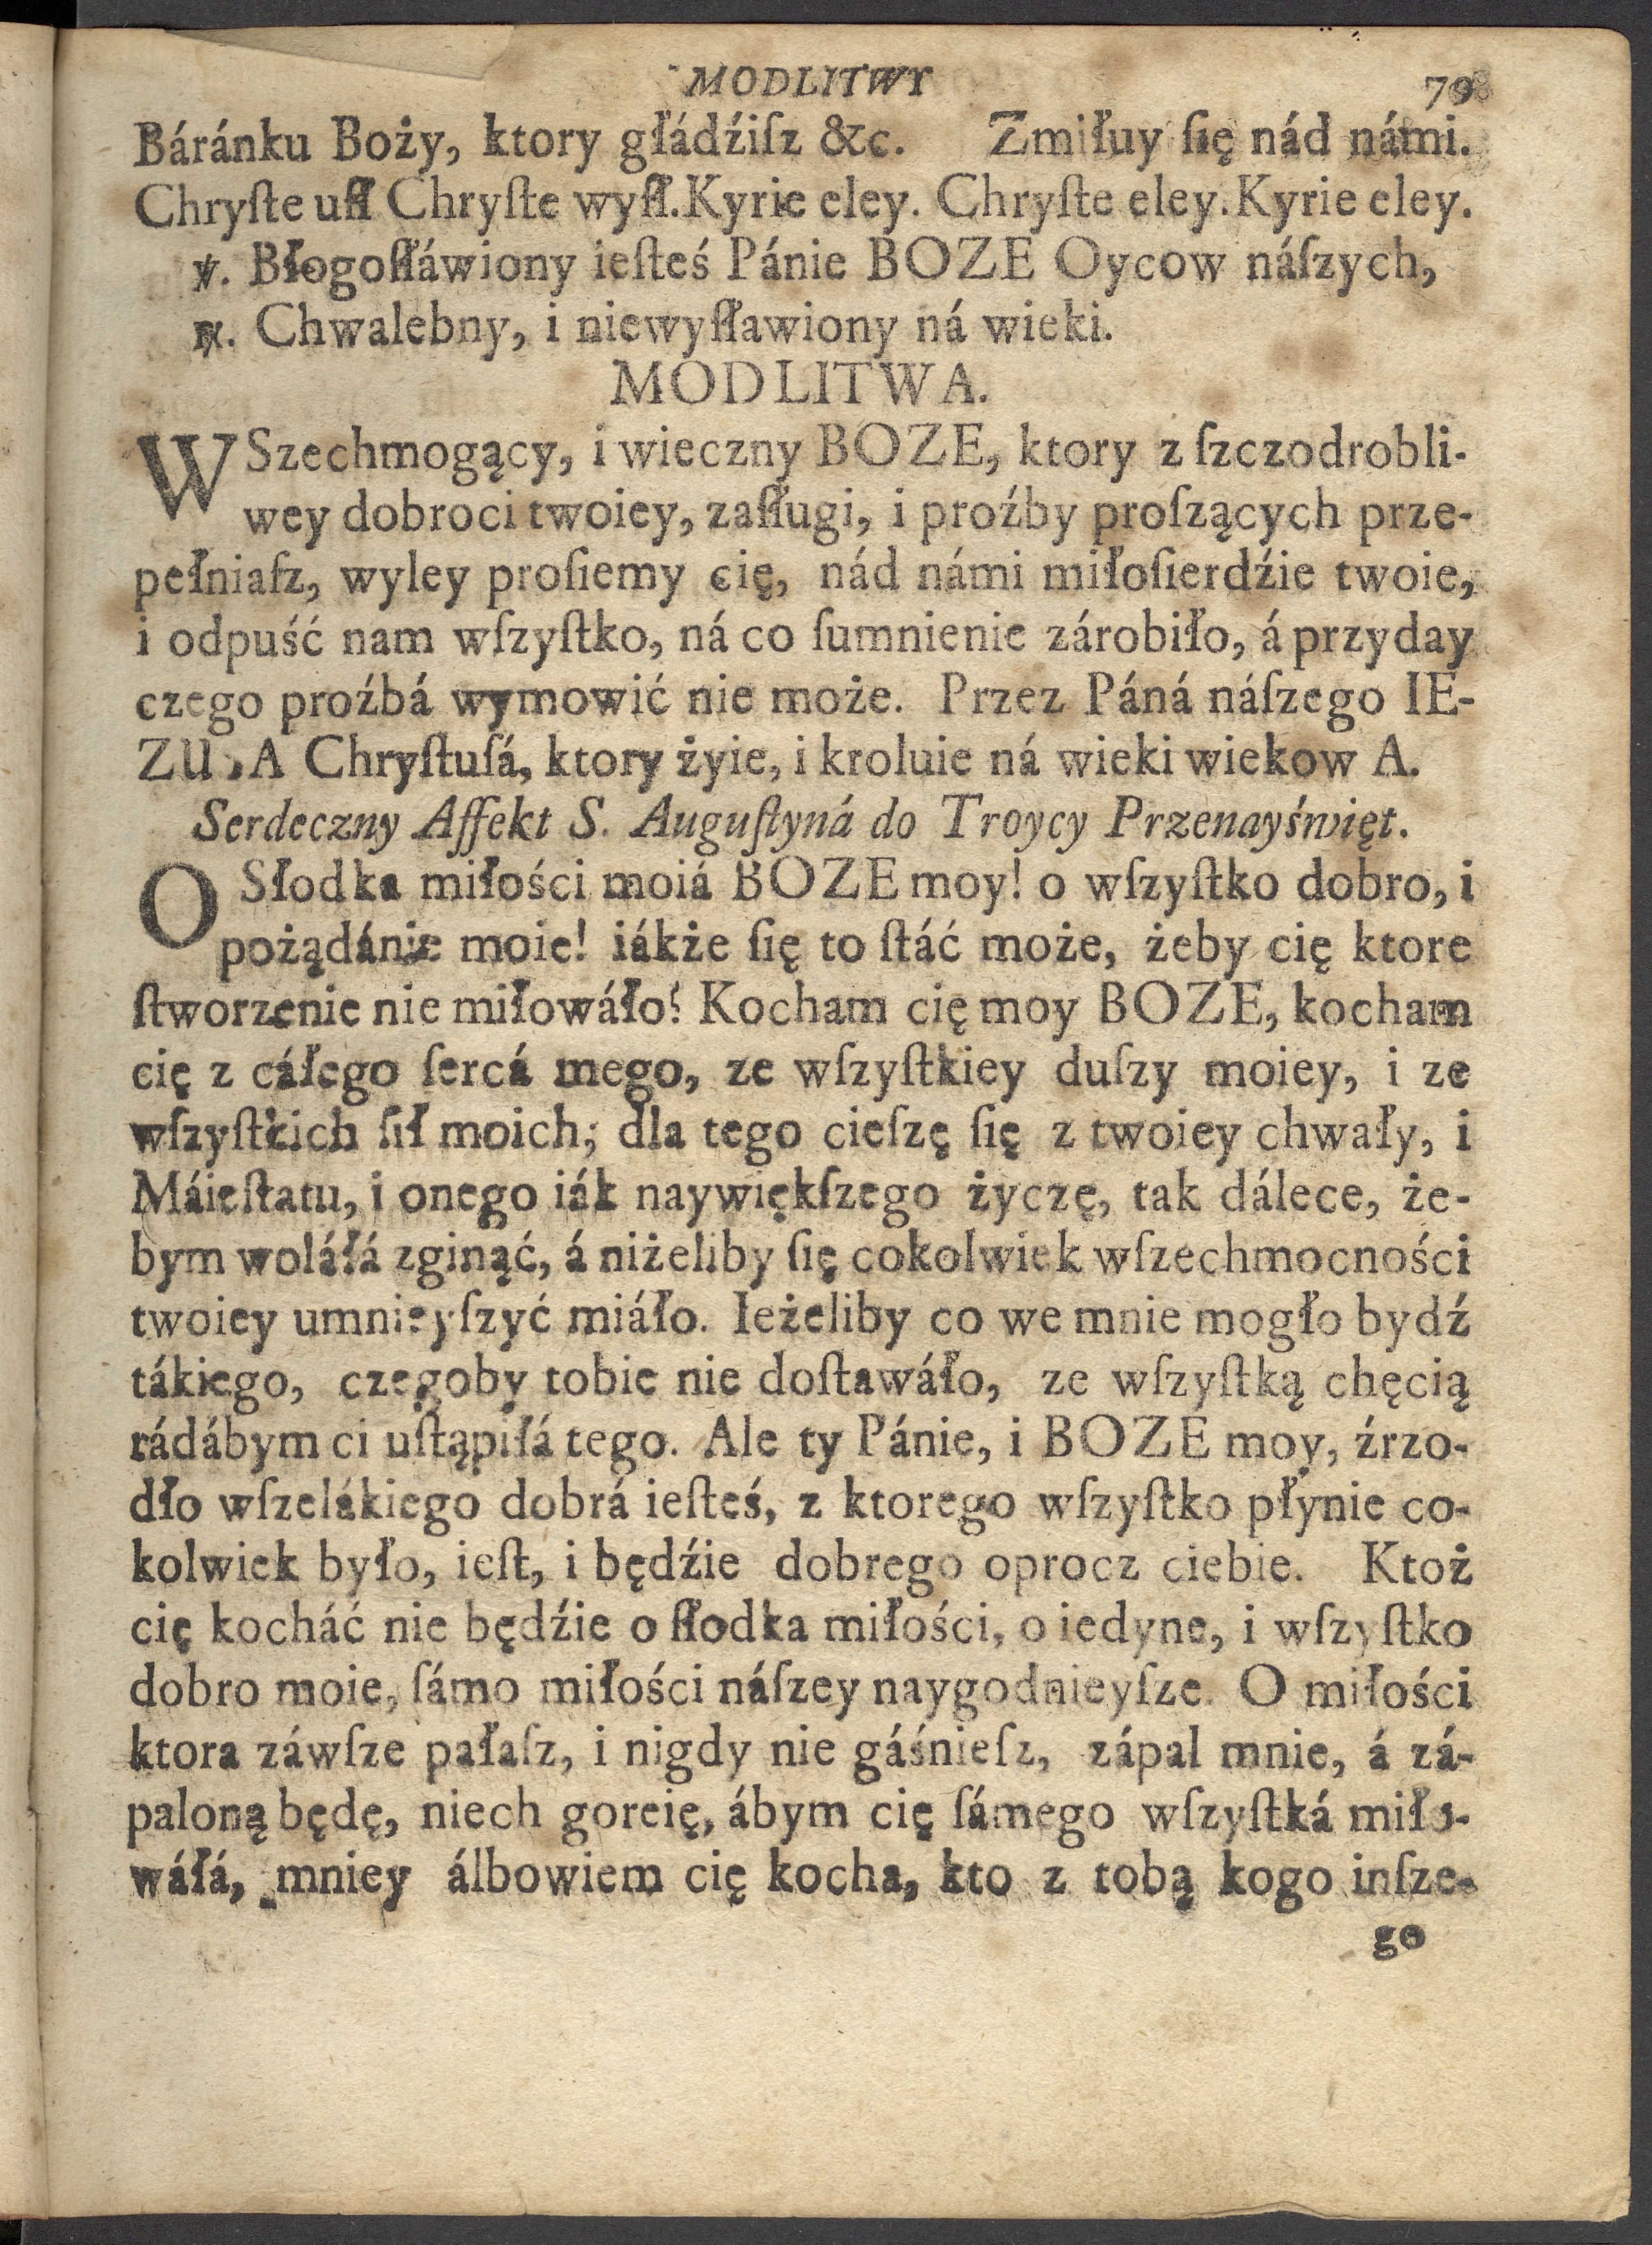 MODLITWY 79
Báránku Boży, ktory głádźiſz &c. Zmiłuy ſię nád námi.
Chryſte uſł Chryſte wyſł. Kyrie eley. Chryſte eley. Kyrie eley.
℣. Błogoſłáwiony ieſteś Pánie BOZE Oycow náſzych,
℟. Chwalebny, i niewyſławiony ná wieki.
MODLITWA.
WSzechmogący, i wieczny BOZE, ktory z ſzczodrobli-
wey dobroci twoiey, zaſługi, i proźby proſzących prze-
pełniaſz, wyley proſiemy cię, nád námi miłoſierdźie twoie,
i odpuść nam wſzyſtko, ná co ſumnienie zárobiło, á przyday
czego proźbá wymowić nie może. Przez Páná náſzego IE-
ZUSA Chryſtuſá, ktory żyie, i kroluie ná wieki wiekow A.
Serdeczny Affekt S. Auguſtyná do Troycy Przenayświęt.
O Słodka miłości moiá BOZE moy! o wſzyſtko dobro, i
pożądánie moie! iákże ſię to ſtáć może, żeby cię ktore
ſtworzenie nie miłowáło? Kocham cię moy BOZE, kocham
cię z cáłego ſercá mego, ze wſzyſtkiey duſzy moiey, i ze
wſzyſtkich ſił moich; dla tego cieſzę ſię z twoiey chwały, i
Máieſtatu, i onego iák naywiękſzego życzę, tak dálece, że-
bym woláłá zginąć, á niżeliby ſię cokolwiek wſzechmocności
twoiey umnieyſzyć miáło. Ieżeliby co we mnie mogło bydź
tákiego, czegoby tobie nie doſtawáło, ze wſzyſtką chęcią
rádábym ci uſtąpiłá tego. Ale ty Pánie, i BOZE moy, źrzo-
dło wſzelákiego dobrá ieſteś, z ktorego wſzyſtko płynie co-
kolwiek było, ieſt, i będźie dobrego oprocz ciebie. Ktoż
cię kocháć nie będźie o ſłodka miłości, o iedyne, i wſzyſtko
dobro moie, ſámo miłości náſzey naygodnieyſze. O miłości
ktora záwſze pałaſz, i nigdy nie gáśnieſz, zápal mnie, á zá-
paloną będę, niech goreię, ábym cię ſámego wſzyſtká miło-
wáłá, mniey álbowiem cię kocha, kto z tobą kogo inſze-
go